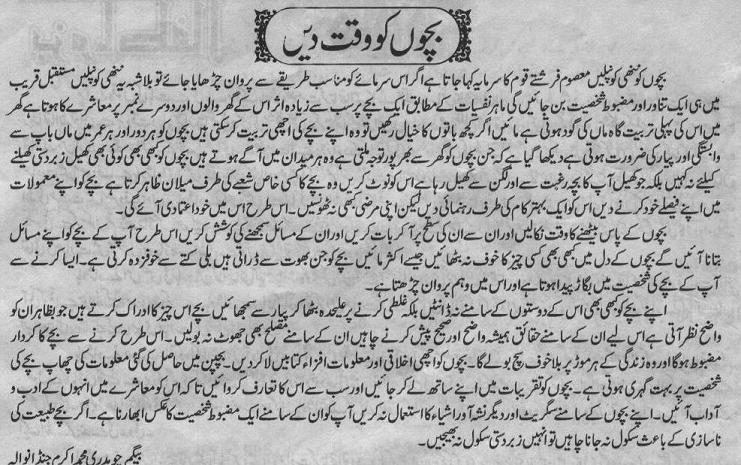 بچوں کو وقت دیں
بچوں کو ننھی کونپلیں معصوم فرشتے قوم کا سرمایہ کہا جاتا ہے اگر اس سرمائے کو مناسب طریقے سے پروان چڑھایا جائے تو بلا شبہ یہ ننھی کونپلیں مستقبل قریب
میں ہی ایک تناور اور مضبوط شخصیت بن جائیں گی ماہر نفسیات کے مطابق ایک بچے پر سب سے زیادہ اثر اس کے گھر والوں اور دوسرے نمبر پر معاشرے کا ہوتا ہے گھر
میں اس کی پہلی تربیت گاہ ماں کی گود ہوتی ہے مائیں اگر کچھ باتوں کا خیال رکھیں تو وہ اپنے بچے کی اچھی تربیت کر سکتی ہیں بچوں کو ہر دور اور ہر عمر میں ماں باپ سے
وابستگی اور پیار کی ضرورت ہوتی ہے دیکھا گیا ہے کہ جن بچوں کو گھر سے بھرپور توجہ ملتی ہے وہ ہر میدان میں آگے ہوتے ہیں بچوں کو کبھی بھی کوئی بھی کھیل زبردستی کھیلنے
کیلئے نہ کہیں بلکہ جو کھیل آپ کا بچہ رغبت سے اور لگن سے کھیل رہا ہے اس کو نوٹ کریں وہ بچے کا کسی خاص شعبے کی طرف میلان ظاہر کرتا ہے بچے کو اپنے معمولات
میں اپنے فیصلے خود کرنے دیں اس کو ایک بہتر کام کی طرف رہنمائی دیں لیکن اپنی مرضی کبھی نہ ٹھونسیں۔ اس طرح اس میں خود اعتمادی آئے گی۔
بچوں کے پاس بیٹھنے کا وقت نکالیں اور ان سے ان کی سطح پر آ کر بات کریں اور ان کے مسائل سمجھنے کی کوشش کریں اس طرح آپ کے بچے کو اپنے مسائل
بتانا آئیں گے بچوں کے دل میں کبھی بھی کسی چیز کا خوف نہ بٹھائیں جیسے اکثر مائیں بچے کو جن بھوت سے ڈراتی ہیں بلی کتے سے خوفزدہ کرتی ہے۔ ایسا کرنے سے
آپ کے بچے کی شخصیت میں بگاڑ پیدا ہوتا ہے اور اس میں وہم پروان چڑھتا ہے۔
اپنے بچے کو کبھی بھی اس کے دوستوں کے سامنے نہ ڈانٹیں بلکہ غلطی کرنے پر علیحدہ بٹھا کر پیار سے سمجھائیں بچے اس چیز کا ادراک کرتے ہیں جو بظاہر ان کو
واضح نظر آتی ہے اس لیے ان کے سامنے حقائق ہمیشہ واضح اور صحیح پیش کرنے چاہیں ان کے سامنے مصلح بھی جھوٹ نہ بولیں۔ اس طرح کرنے سے بچے کا کردار
مضبوط ہوگا اور وہ زندگی کے ہر موڑ پر بلا خوف سچ بولے گا۔ بچوں کو اچھی اخلاقی اور معلومات افزاء کتابیں لا کر دیں۔ بچپن میں حاصل کی گئی معلومات کی چھاپ بچے کی
شخصیت پر بہت گہری ہوتی ہے۔ بچوں کو تقریبات میں اپنے ساتھ لے کر جائیں اور سب سے اس کا تعارف کروائیں تا کہ اس کو معاشرے میں انہوں کے ادب و
آداب آئیں۔ اپنے بچوں کے سامنے سگریٹ اور دیگر نشہ آور اشیاء کا استعمال نہ کریں آپ کو ان کے سامنے ایک مضبوط شخصیت کا عکس ابھارنا ہے۔ اگر بچے طبیعت کی
ناسازی کے باعث سکول نہ جانا چاہیں تو انہیں زبردستی سکول نہ بھیجیں۔
بیگم چوہدری محمد اکرم جنڈانوالہ